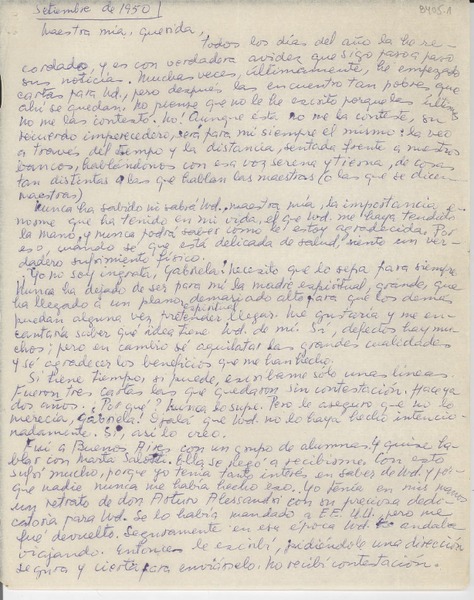 Setiembre de 1950
8405.1
Maestra mía, querida,
Todos los días del año la he re-
cordado, y es con verdadera avidez que sigo paso a paso
sus noticias. Muchas veces, últimamente, he empezado
cartas para Ud., pero después las encuentro tan pobres que
ahí se quedan. No piense que no le he escrito porque las últimas
no me las contestó. No! Aunque ésta no me la conteste, su
recuerdo imperecedero, será para mí siempre el mismo: la veo
a través del tiempo y la distancia, sentada frente a nuestros
bancos, hablándonos con esa voz serena y tierna, de cosas
tan distintas a las que hablan las maestras (o las que se dicen
maestras)
Nunca ha sabido ni sabrá Ud., maestra mía, la importancia e-
norme que ha tenido en mi vida, el que Ud. me haya tendido
la mano, y nunca podrá saber cómo le estoy agradecida. Por
eso, cuando sé que está delicada de salud, siento un ver-
dadero sufrimiento físico.
Yo no soy ingrata, Gabriela: necesito que lo sepa para siempre.
Nunca ha dejado de ser para mí la madre espiritual, grande, que
ha llegado a un plano demasiado alto para que los demás
puedan alguna vez pretender llegar. Me gustaría y me en-
cantaría saber qué idea tiene Ud. de mí. Sí, defectos hay mu-
chos; pero en cambio sé aquilatar las grandes cualidades
y sé agradecer los beneficios que me han hecho.
Si tiene tiempo, si puede, escríbame sólo unas líneas.
Fueron tres cartas las que quedaron sin contestación. Hace ya
dos años. ¿Por qué? Nunca lo supe. Pero le aseguro que no lo
merecía, Gabriela! Ojalá que Ud. no lo haya hecho intencio-
nadamente. Sí, así lo creo.
Fui a Buenos Aires con un grupo de alumnas y quise ha-
blar con Marta Salotti. Ella se negó a recibirme. Con esto
sufrí mucho, porque yo tenía tanto interés en saber de Ud. y por-
que nadie nunca me había hecho eso. Yo tenía en mis manos
un retrato de don Arturo Alessandri con su preciosa dedi-
catoria para Ud. Se lo había mandado a EE. UU., pero me
fué devuelto. Seguramente en esa época Ud. andaba
viajando. Entonces le escribí, pidiéndole una dirección
segura y cierta para enviárselo. No recibí contestación.